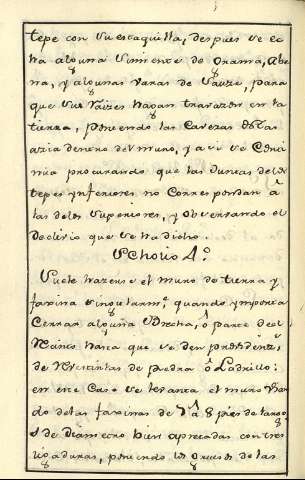 tepe con su estaquilla, despues se e
cha alguna simiente de Grama, Abe
na, y algunas varas de sauze, para
que sus Raizes hagan travazon en la
tierra, poniendo las Cavezas
azia dentro del muro, y assi se Conti
núa procurando que las Juntas delos
tepes ynferiores no Correspondan â
las delos superiores, y observando el
Declivio que se ha dicho.
Scholio 4.º
Suele hazerse el muro de tierra y
faxina quando ymporta
Cerrar alguna Brecha, ô parte del
hasta que se den
de de piedra ô Ladrillo:
en este Caso se levanta el muro
do delas faxinas de 7 â 8 pies de largo
de Diametro bien apretadas con tres
ligaduras, poniendo los gruesos delas